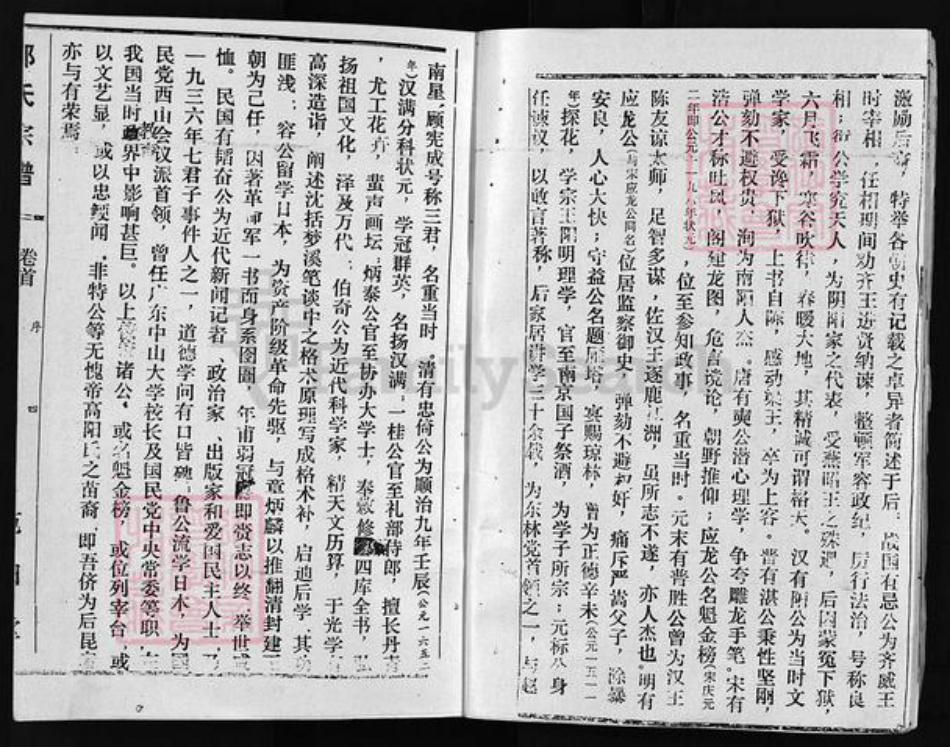 激励后裔，特举各朝史有记载之卓异者简述于后。战国有忌公为齐威王
时宰相，任相期间劝齐王进贤纳谏，整顿军容政纪，厉行法治，号称良
相；衍公学究天人，为阴阳家之代表，受燕昭王之殊遇，后因蒙冤下狱，
六月飞霜，寒谷吹律，春暖大地，其精诚可谓格天。汉有阳公为当时文
学家，受谗下狱，上书自陈，感动梁王，卒为上客。晋有湛公秉性坚刚，
弹劾不避权贵，洵为南阳人杰。唐有奭公潜心理学，争夸雕龙手笔。宋有
浩公才标吐凤，阁建龙图，危言谠论，朝野推仰；应龙公名魁金榜(宋庆元
二年即公元一一九六年状元)，位至参知政事，名重当时。元末有普胜公曾为汉王
陈友谅太师，足智多谋，佐汉王逐鹿江洲，虽所志不遂，亦人杰也。明有
应龙公(与宋应龙公同名)位居监察御史，弹劾不避权奸，痛斥严嵩父子，除暴
安良，人心大快；守益公名题雁塔，宴赐琼林，曾为正德辛未(公元一五一一
年)探花，学宗王阳明理学，官至南京国子祭酒，为学子所宗；元标公身
任谏议，以敢言著称，后家居讲学三十余载，为东林党首领之一，与赵
南星、顾宪成号称三君，名重当时。清有忠倚公为顺治九年壬辰(公元一六五二
年)汉满分科状元，学冠群英，名扬汉满；一桂公官至礼部侍郎，擅长丹青
，尤工花卉，蜚声画坛；炳泰公官至协办大学士，奉敕修四库全书，弘
扬祖国文化，泽及万代；伯奇公为近代科学家，精天文历算，于光学有
高深造诣，阐述沈括梦溪笔谈中之格术原理写成格术补，启迪后学，其功
匪浅；容公留学日本，为资产阶级革命先驱，与章炳麟以推翻清封建王
朝为己任，因著革命军一书而身系囹圄，年甫弱冠，即赍志以终，举世
恤。民国有韬奋公为近代新闻记者、政治家、出版家和爱国民主人士，乃
一九三六年七君子事件人之一，道德学问有口皆碑。鲁公流学日本，为国
民党西山会议派首领，曾任广东中山大学校长及国民党中央常委等职，在
我国当时政教界中影响甚巨。以上诸公，或名魁金榜，或位列宰台，或
以文艺显，或以忠鲠闻，非特公等无愧帝高阳氏之苗裔，即吾侪为后昆者
亦与有荣焉。
邹氏宗谱
卷首
序
四
FamilySearch